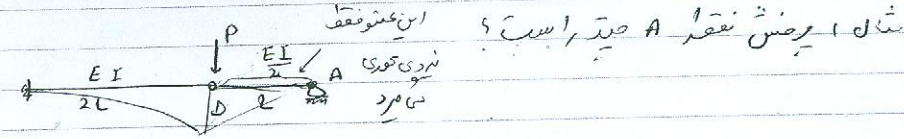 مثال ۱ چرخش نقطه A چقدر است ؟
این عضو فقط
نیروی محوری
می گیرد
P
EI
EI/2
A
2L
D
L